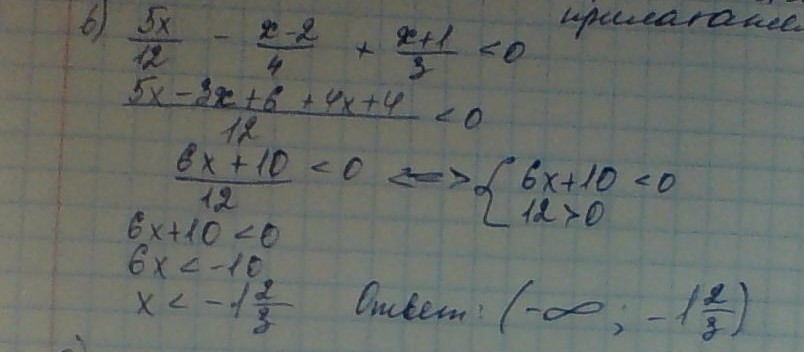 б) 5x/12 - x-2/4 + x+1/3 <0
5x-3x+6+4x+4/12 <0
6x+10/12 <0 <=> { 6x+10<0
12>0
6x+10<0
6x<-10
x<-1 2/3 Ответ: (-∞; -1 2/3)